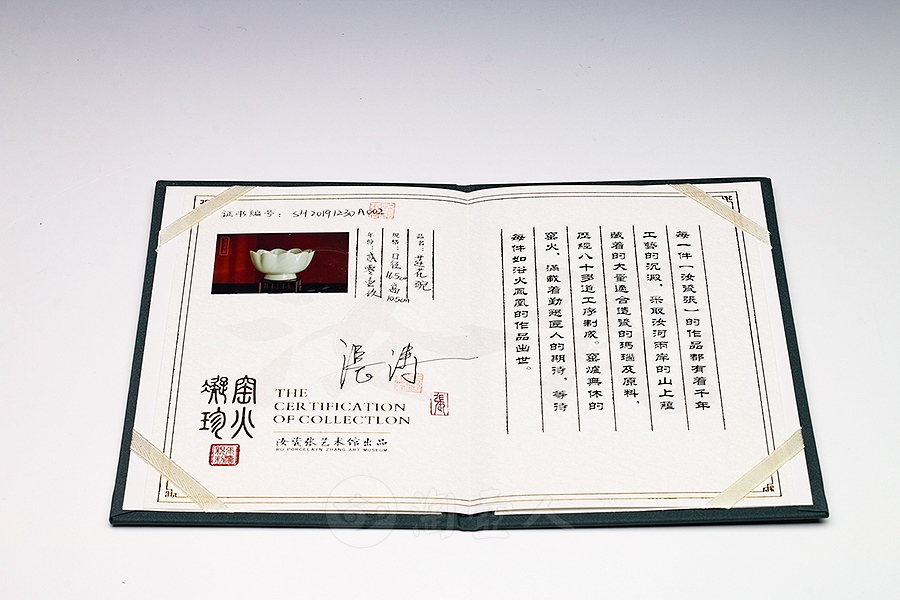 证书编号：SH20191230A002
品名：莲花碗
规格：口径16.5cm 高10.5cm
年份：贰零壹玖
窑火
凝珍
THE
CERTIFICATION
OF COLLECTLON
汝瓷张艺术馆出品
RU PORCELAIN ZHANG ART MUSEUM
張
每一件「汝瓷張」的作品都有着千年
工藝的沉澱，采取汝河兩岸的山上蘊
藏着的大量適合造瓷的瑪瑙及原料，
歷經八十多道工序制成。窑爐無休的
窑火，滿載着勤懇匠人的期待，等待
每件如浴火鳳凰的作品出世。